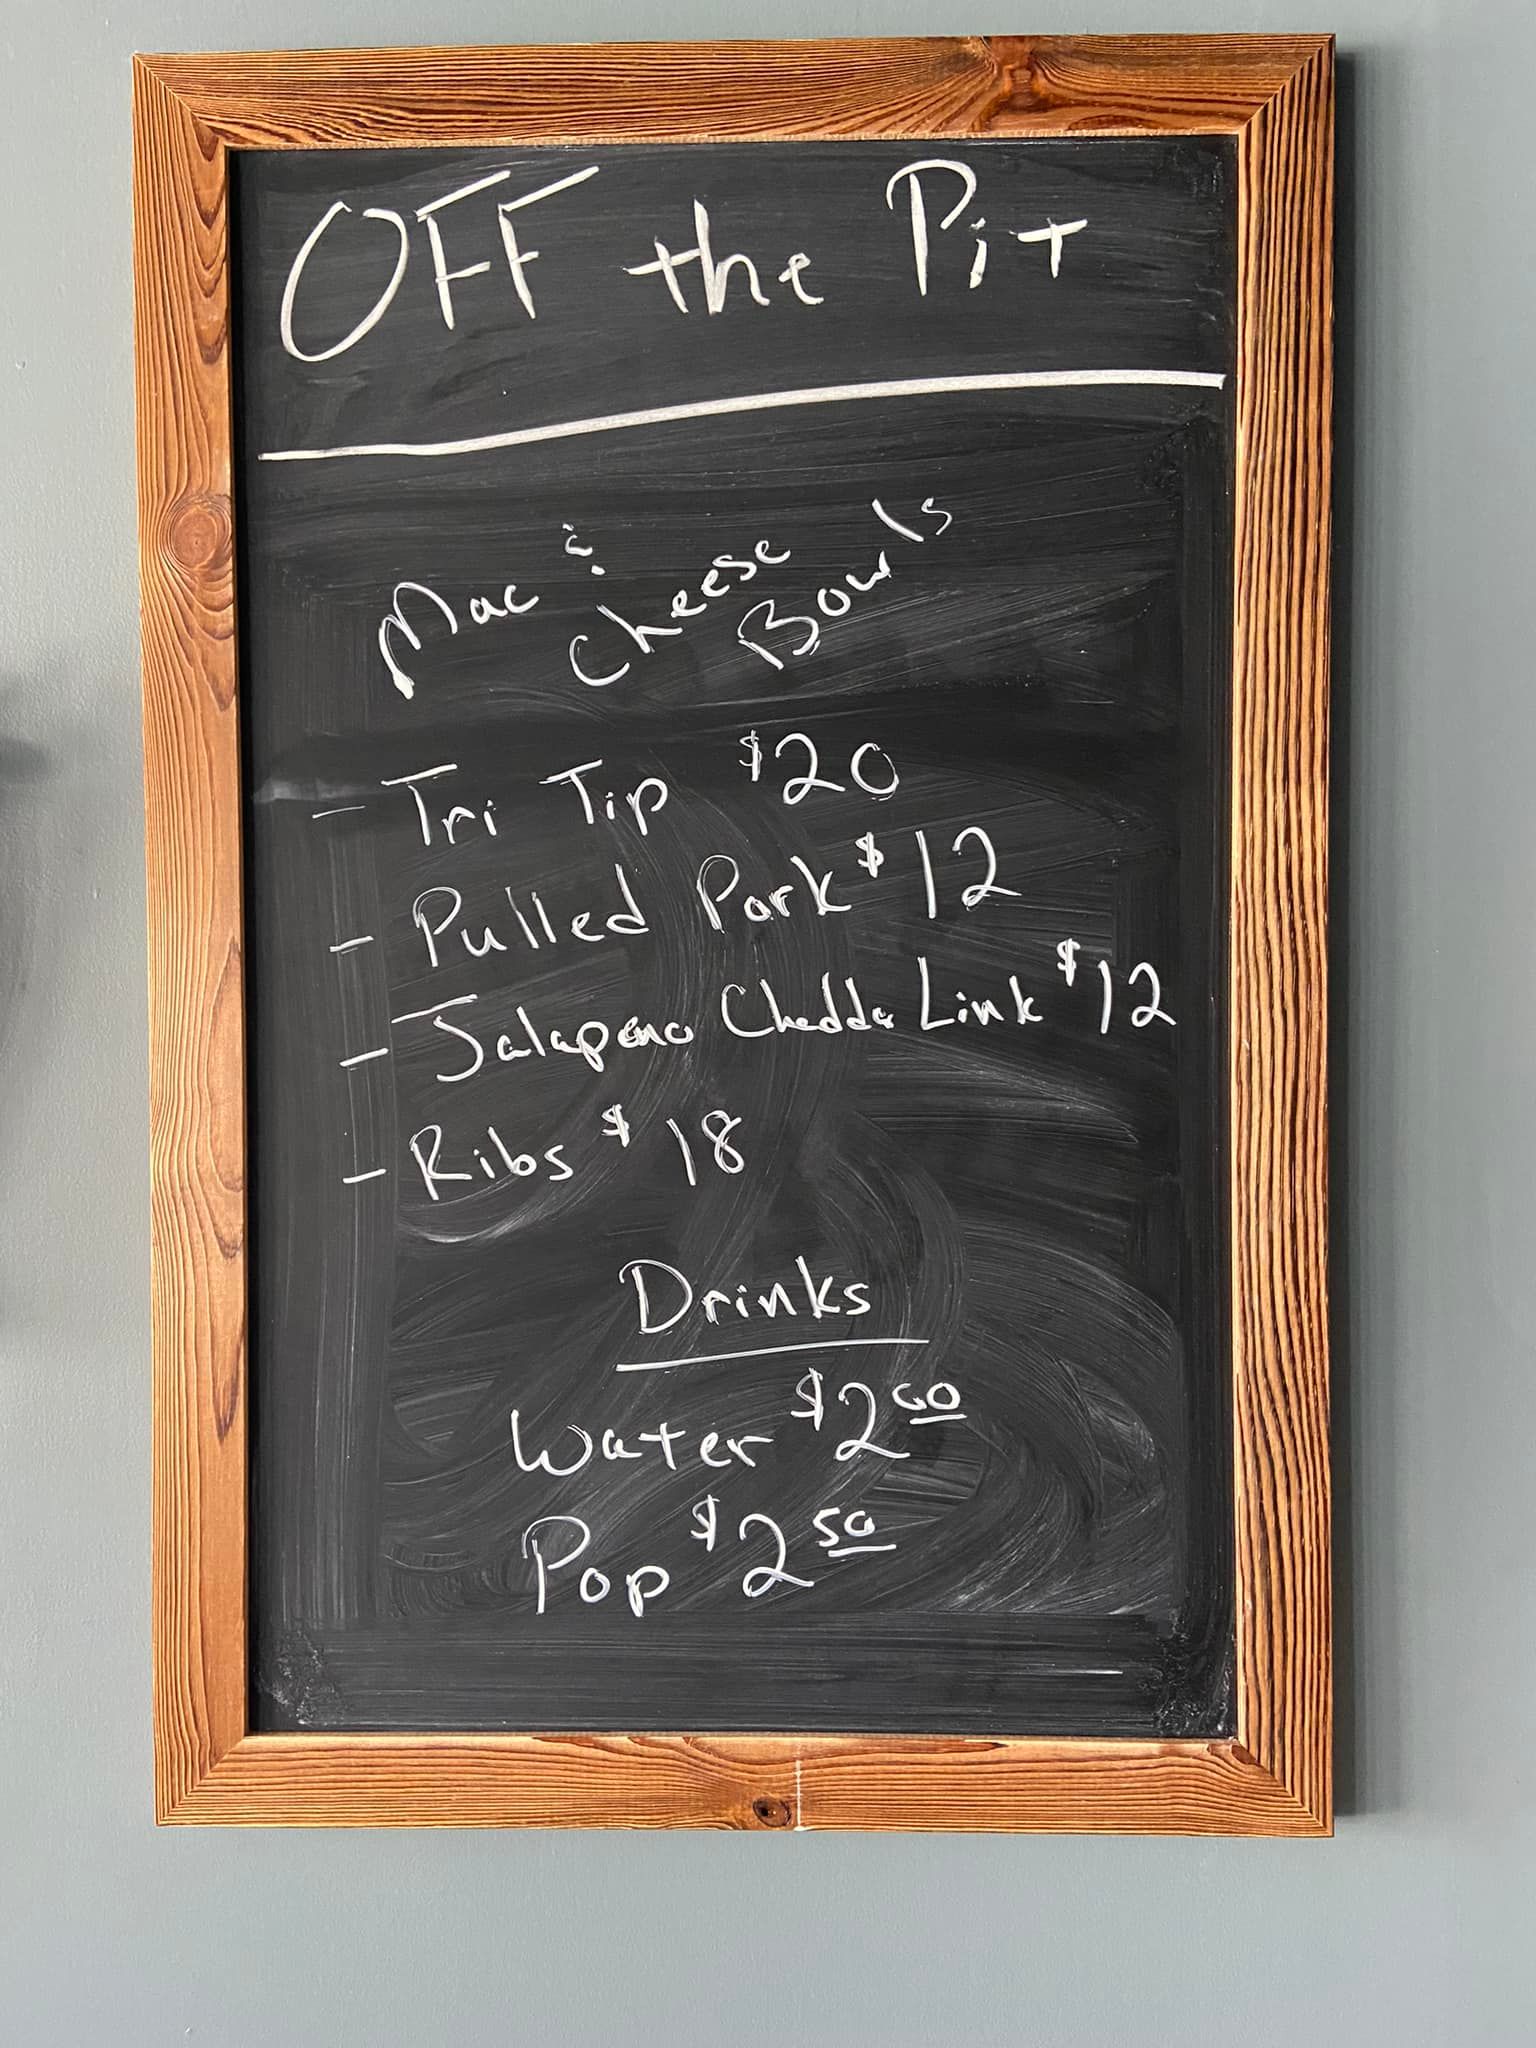 OFF the Pit
Mac & Cheese Bowls
- Tri Tip $20
- Pulled Pork $12
- Jalapeno Chedda Link $12
- Ribs $18
Drinks
Water $2 00
Pop $2 50